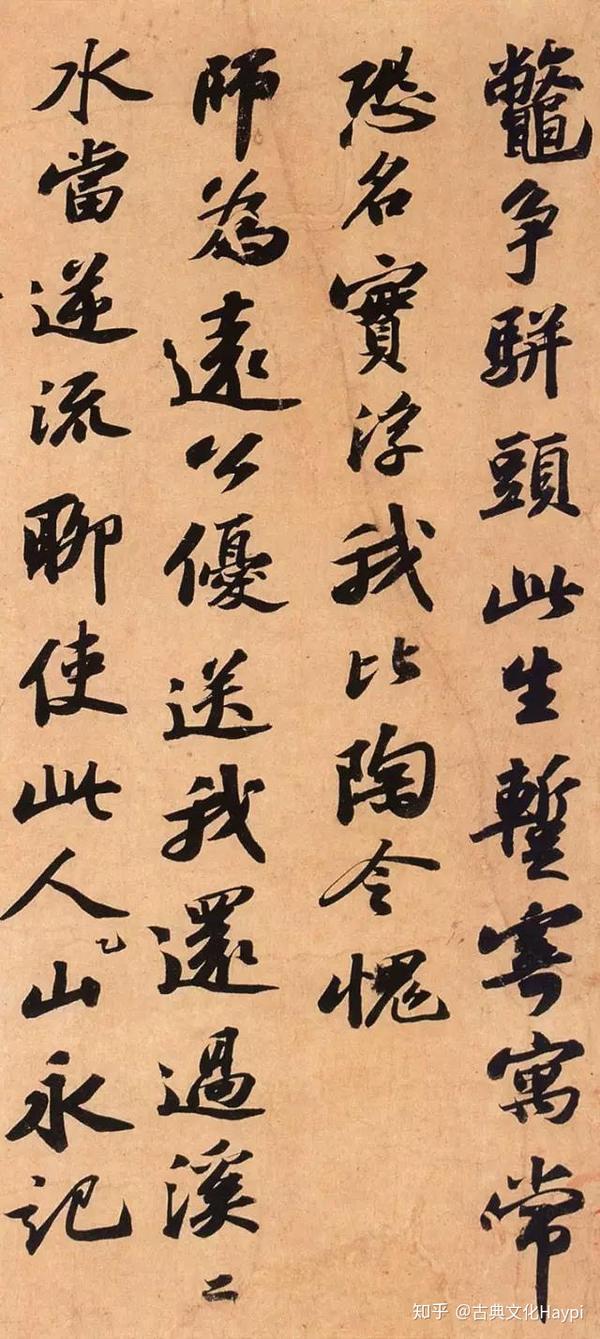 鼈争駢頭此生暫寄寓常
恐名實浮我比陶令愧
師為遠公優送我還過溪二
水當逆流聊使此人山永記
知乎 @古典文化Haypi